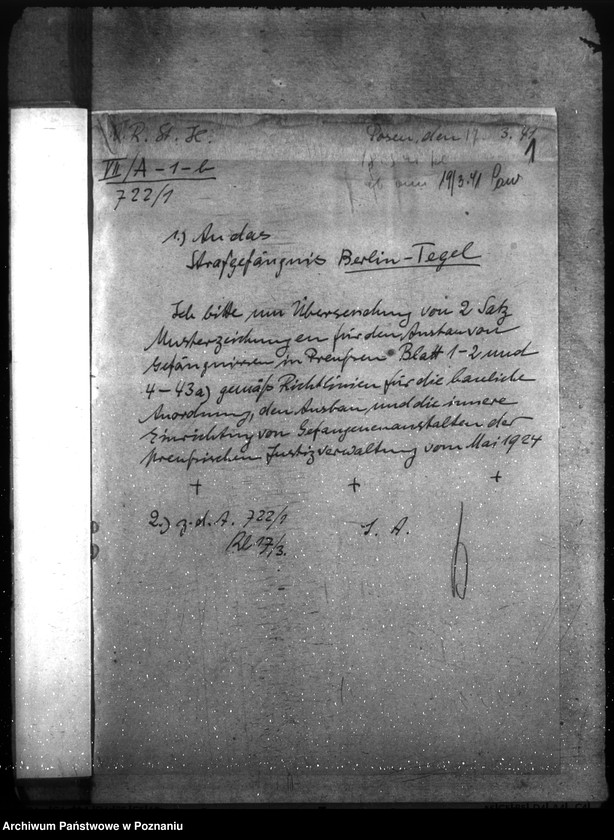 R. St. H.
Posen, den 17. 3. 41
1
VII/A-1-b
19/3.41
722/1
1.) An das
Strafgefängnis Berlin-Tegel
Ich bitte um Übersendung von 2 Satz
Musterzeichnungen für den Ausbau von
Gefängnissen in Preußen Blatt 1-2 und
4-43a) gemäß Richtlinien für die bauliche
Anordnung, den Ausbau, und die innere
Einrichtung von Gefangenenanstalten der
preußischen Justizverwaltung vom Mai 1924
+ + +
2.) z. d. A. 722/1
I. A.
17/3.
Archiwum Państwowe w Poznaniu